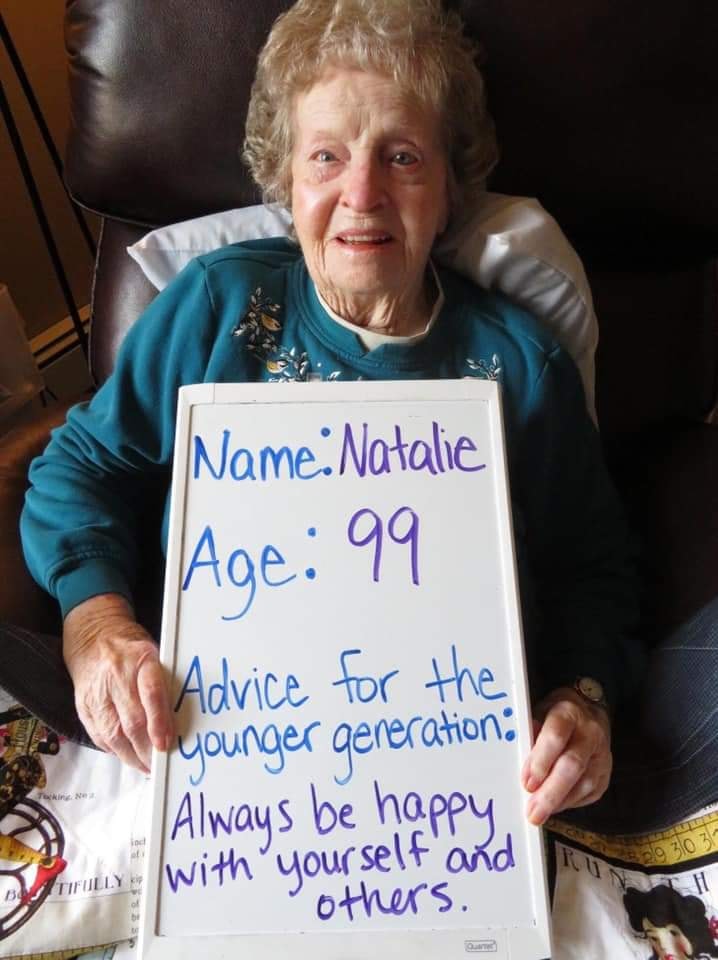 Name: Natalie
Age: 99
Advice for the
younger generation:
Always be happy
with yourself and
others.
Quartet
Tucking, No 2
TIFULLY
29 30